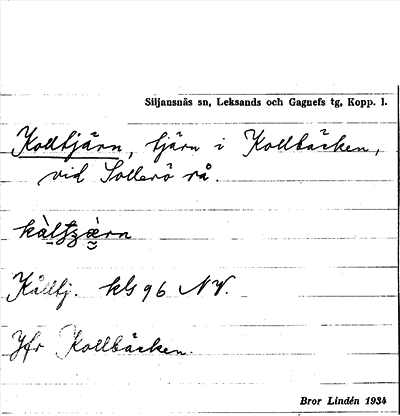 Siljansnäs sn, Leksands och Gagnefs tg, Kopp. l.
Kolltjärn, tjärn i Kollbäcken,
vid Sollerö rå.
Kålltj. kls 96 NV.
Jfr Kollbäcken.
Bror Lindén 1934